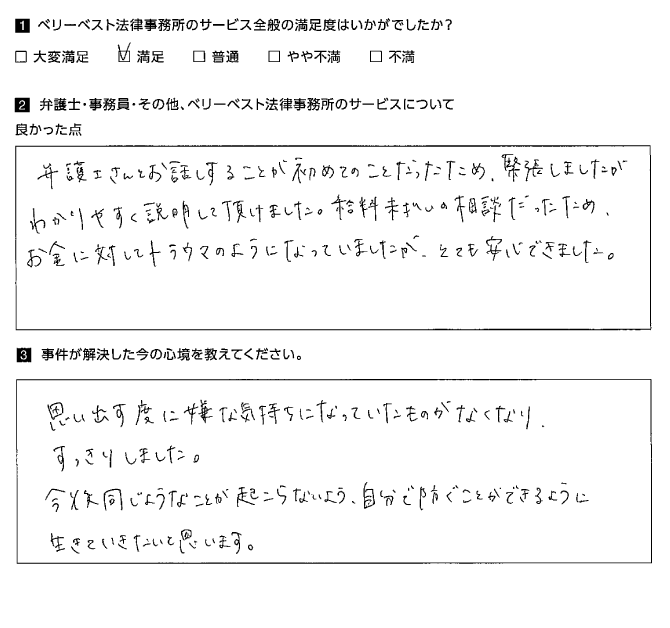 1 ベリーベスト法律事務所のサービス全般の満足度はいかがでしたか？
□ 大変満足 ☑ 満足 □ 普通 □ やや不満 □ 不満
2 弁護士・事務員・その他、ベリーベスト法律事務所のサービスについて
良かった点
弁護士さんとお話しすることが初めてのことだったため、緊張しましたが
わかりやすく説明して頂けました。給料未払いの相談だったため、
お金に対してトラウマのようになっていましたが、とても安心できました。
3 事件が解決した今の心境を教えてください。
思い出す度に嫌な気持ちになっていたものがなくなり、
すっきりしました。
今後同じようなことが起こらないよう、自分で防ぐことができるように
生きていきたいと思います。